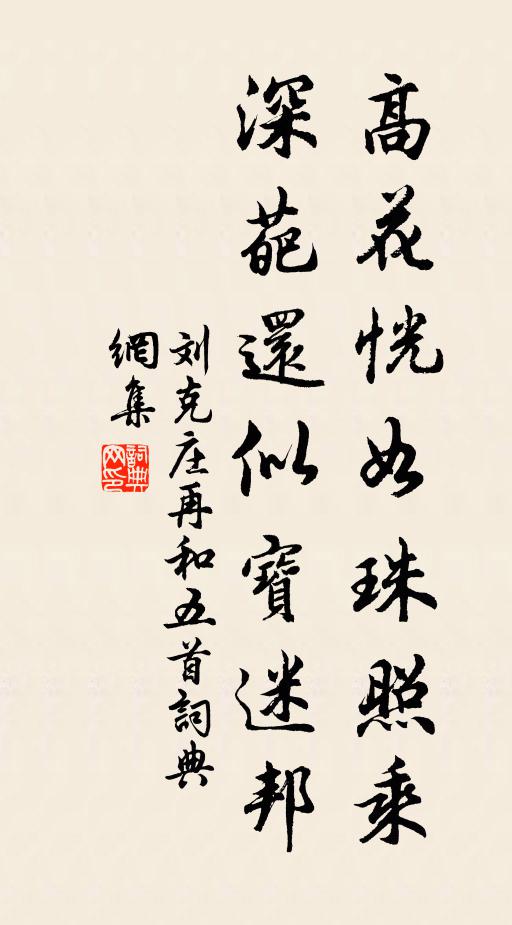 高花恍如珠照乘
深葩還似寶迷邦
刘克庄再和五首詞典
網集
詞典网印